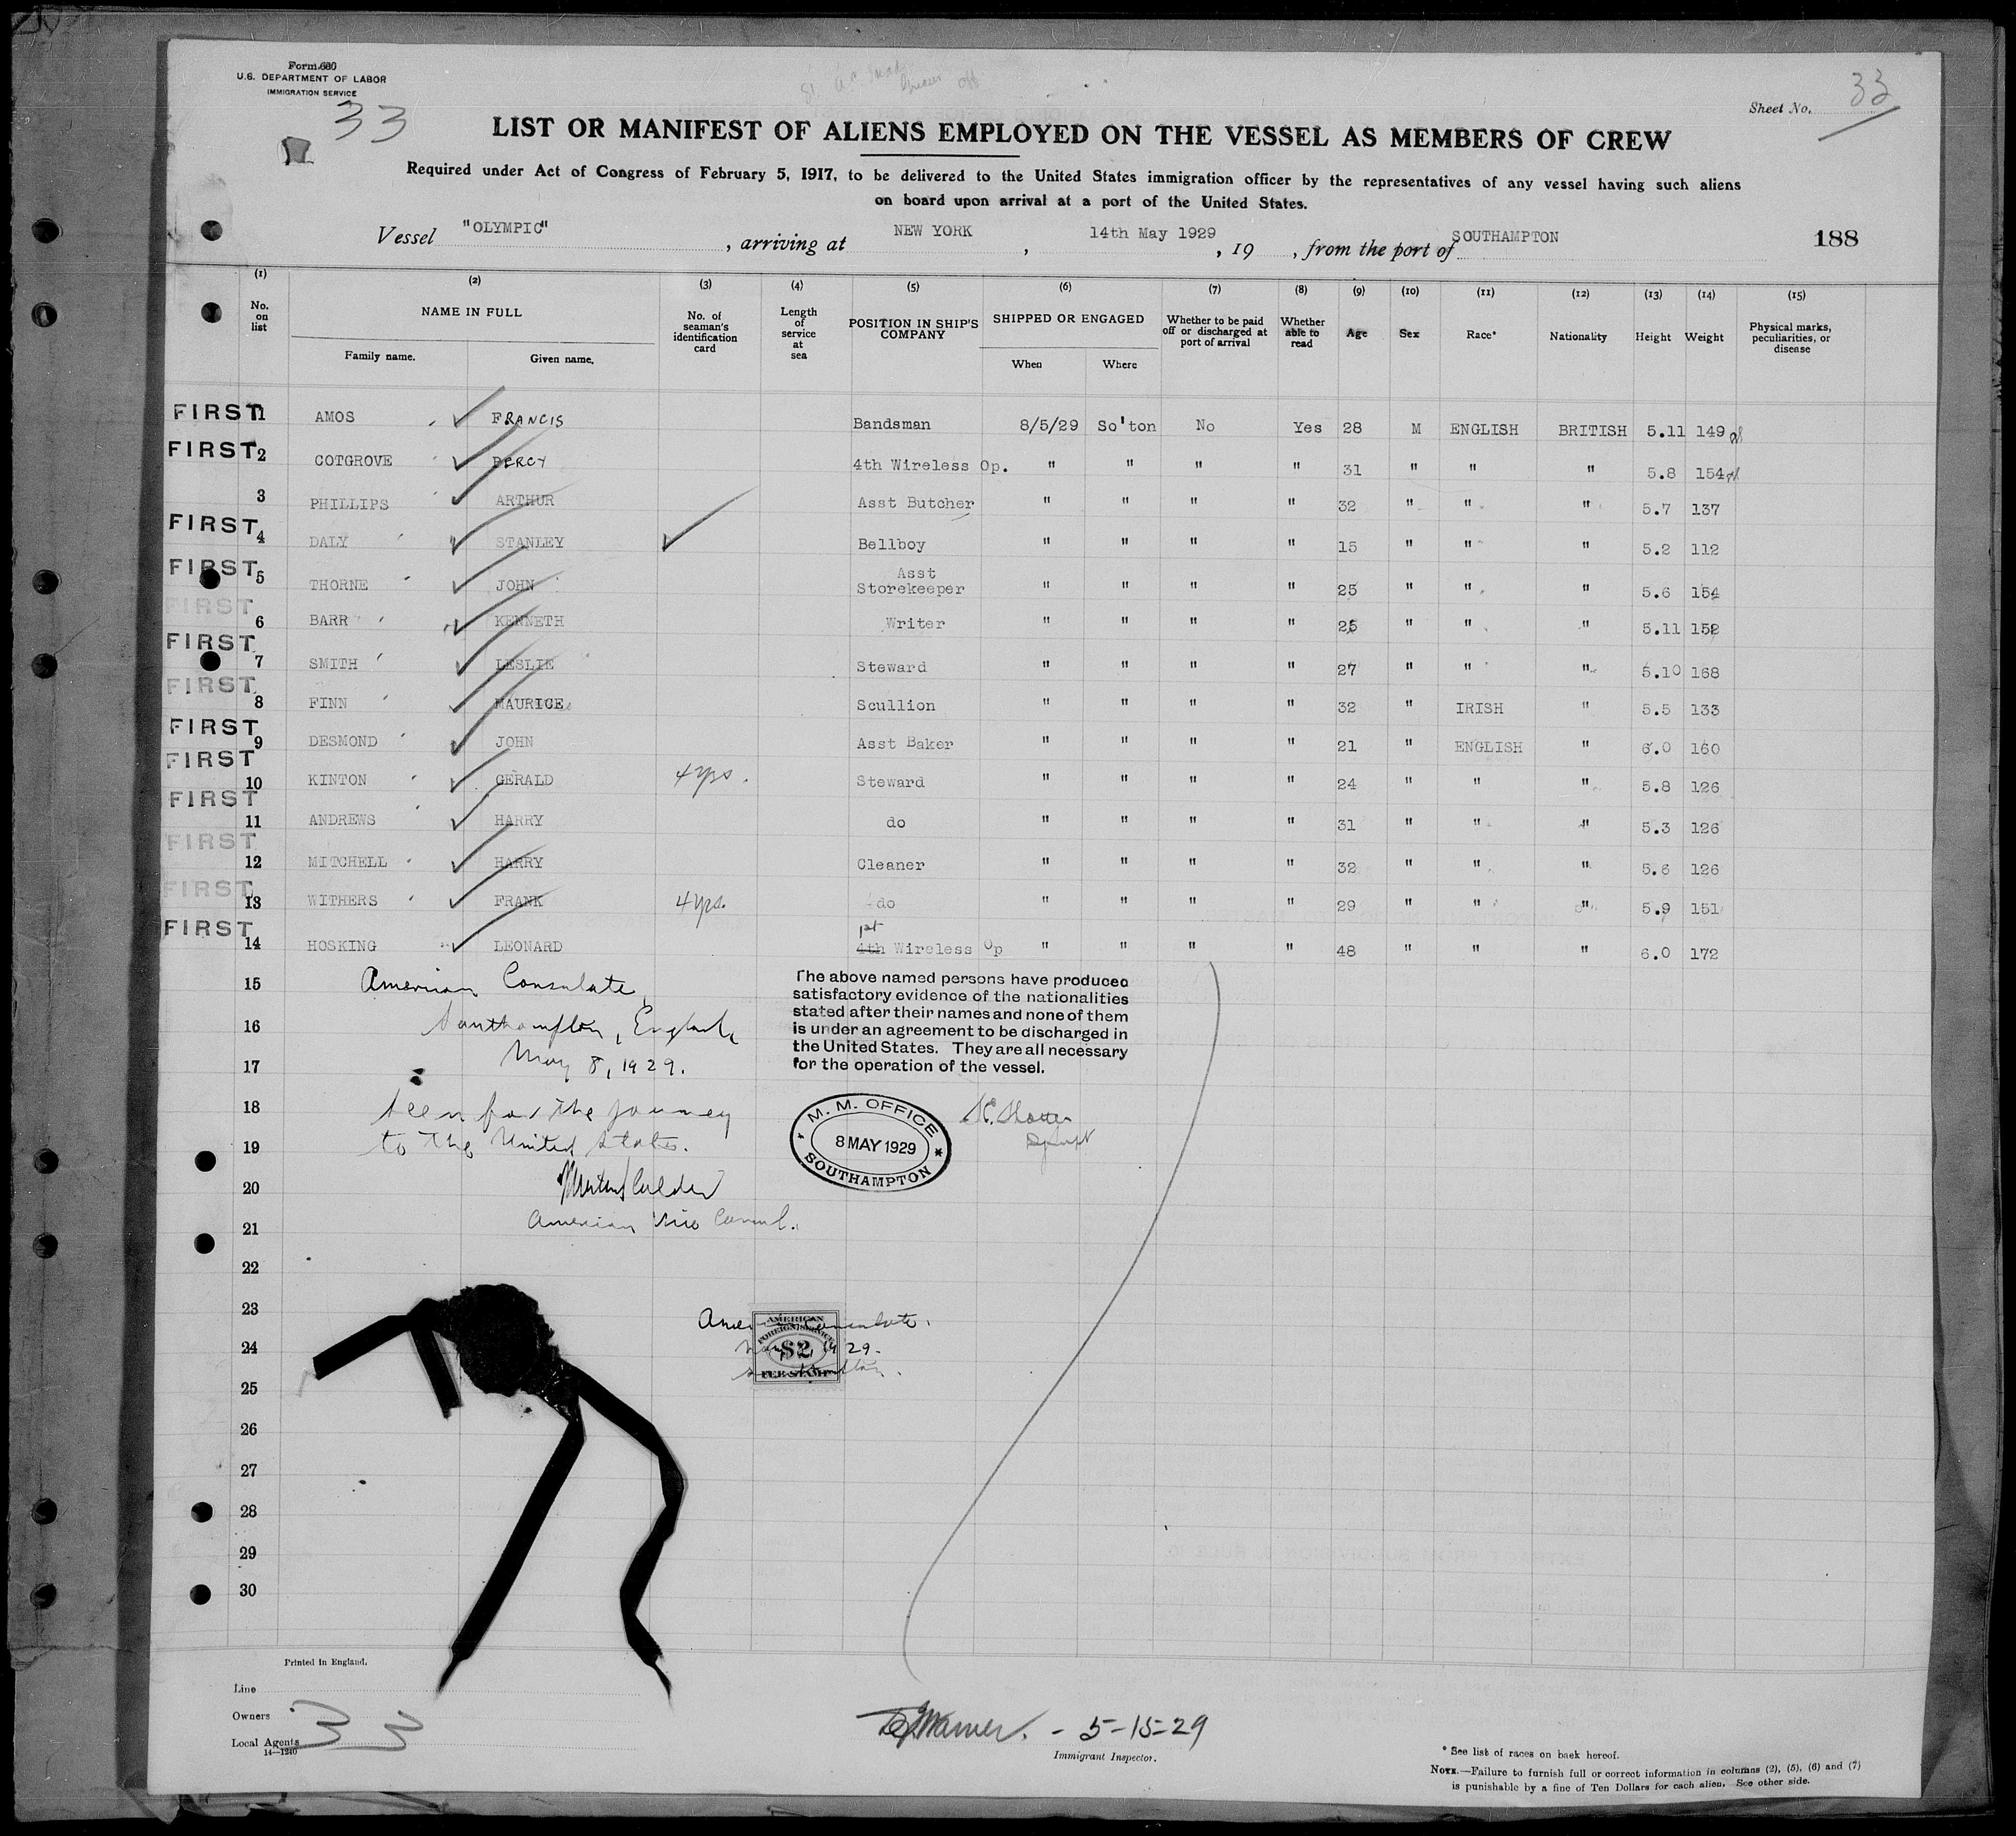 Form 680
U.S. DEPARTMENT OF LABOR
IMMIGRATION SERVICE
33
Sheet No. 33
LIST OR MANIFEST OF ALIENS EMPLOYED ON THE VESSEL AS MEMBERS OF CREW
Required under Act of Congress of February 5, 1917, to be delivered to the United States immigration officer by the representatives of any vessel having such aliens
on board upon arrival at a port of the United States.
Vessel "OLYMPIC", arriving at NEW YORK, 14th May 1929, 19 , from the port of SOUTHAMPTON 188
(1) (2) (3) (4) (5) (6) (7) (8) (9) (10) (11) (12) (13) (14) (15)
No. on list NAME IN FULL Family name. Given name. No. of seaman's identification card Length of service at sea POSITION IN SHIP'S COMPANY SHIPPED OR ENGAGED When Where Whether to be paid off or discharged at port of arrival Whether able to read Age Sex Race* Nationality Height Weight Physical marks, peculiarities, or disease
FIRST 1 AMOS FRANCIS Bandsman 8/5/29 So'ton No Yes 28 M ENGLISH BRITISH 5.11 149
FIRST 2 COTGROVE PERCY 4th Wireless Op. " " " " 31 " " " 5.8 154
3 PHILLIPS ARTHUR Asst Butcher " " " " 32 " " " 5.7 137
FIRST 4 DALY STANLEY Bellboy " " " " 15 " " " 5.2 112
FIRST 5 THORNE JOHN Asst Storekeeper " " " " 25 " " " 5.6 154
FIRST 6 BARR KENNETH Writer " " " " 25 " " " 5.11 152
FIRST 7 SMITH LESLIE Steward " " " " 27 " " " 5.10 168
FIRST 8 FINN MAURICE Scullion " " " " 32 " IRISH " 5.5 133
FIRST 9 DESMOND JOHN Asst Baker " " " " 21 " ENGLISH " 6.0 160
FIRST 10 KINTON GERALD 4 yrs. Steward " " " " 24 " " " 5.8 126
FIRST 11 ANDREWS HARRY do " " " " 31 " " " 5.3 126
FIRST 12 MITCHELL HARRY Cleaner " " " " 32 " " " 5.6 126
FIRST 13 WITHERS FRANK 4 yrs. do " " " " 29 " " " 5.9 151
FIRST 14 HOSKING LEONARD 1st 4th Wireless Op " " " " 48 " " " 6.0 172
15
16
17
18
19
20
21
22
23
24
25
26
27
28
29
30
American Consulate,
Southampton, England,
May 8, 1929.
Seen for the journey
to the United States.
American Vice Consul.
The above named persons have produced
satisfactory evidence of the nationalities
stated after their names and none of them
is under an agreement to be discharged in
the United States. They are all necessary
for the operation of the vessel.
M. M. OFFICE
8 MAY 1929
SOUTHAMPTON
American Consulate.
AMERICAN
FOREIGN SERVICE
$2
FEE STAMP
29.
Printed in England.
Line
Owners
Local Agents
14—1240
33
5-15-29
Immigrant Inspector.
* See list of races on back hereof.
NOTE.—Failure to furnish full or correct information in columns (2), (5), (6) and (7)
is punishable by a fine of Ten Dollars for each alien. See other side.